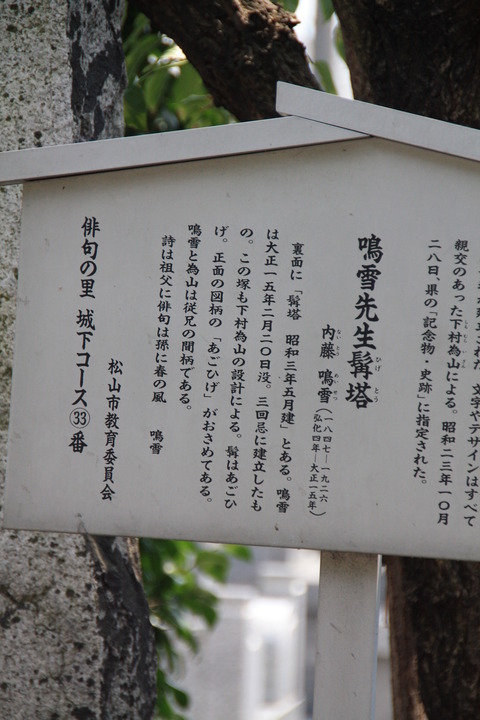 親交のあった下村為山による。昭和二三年一〇月
二八日、県の「記念物・史跡」に指定された。
鳴雪先生髯塔
内藤 鳴雪(一八四七―一九二六
弘化四年―大正一五年)
裏面に「髯塔 昭和三年五月建」とある。鳴雪
は大正一五年二月二〇日没。三回忌に建立したも
の。この塚も下村為山の設計による。髯はあごひ
げ。正面の図柄の「あごひげ」がおさめてある。
鳴雪と為山は従兄の間柄である。
詩は祖父に俳句は孫に春の風 鳴雪
松山市教育委員会
俳句の里 城下コース㉝番